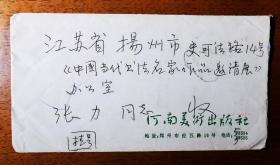 江苏省揚州市史可法路14号
《中国当代书法名家作品邀请展》
办公室
张力 同志 收
河南美术出版社
地址：郑州市经五路
电话：
挂号